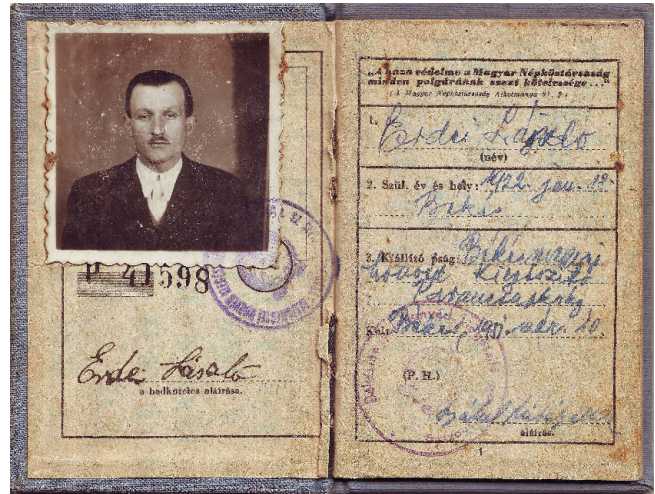 P 41598
Erdei László
a hadköteles aláírása.
„A haza védelme a Magyar Népköztársaság
minden polgárának szent kötelessége . . .“
(A Magyar Népköztársaság Alkotmánya 61. §.)
1.
Erdei László
(név)
2. Szül. év és hely: 1922. jan. 19.
Békés
3. Kiállító pság: Békésmegyei
Honvéd Kiegészítő
Parancsnokság
Kelt: Békés, 1951. már. 10.
(P. H.)
aláírás.
1